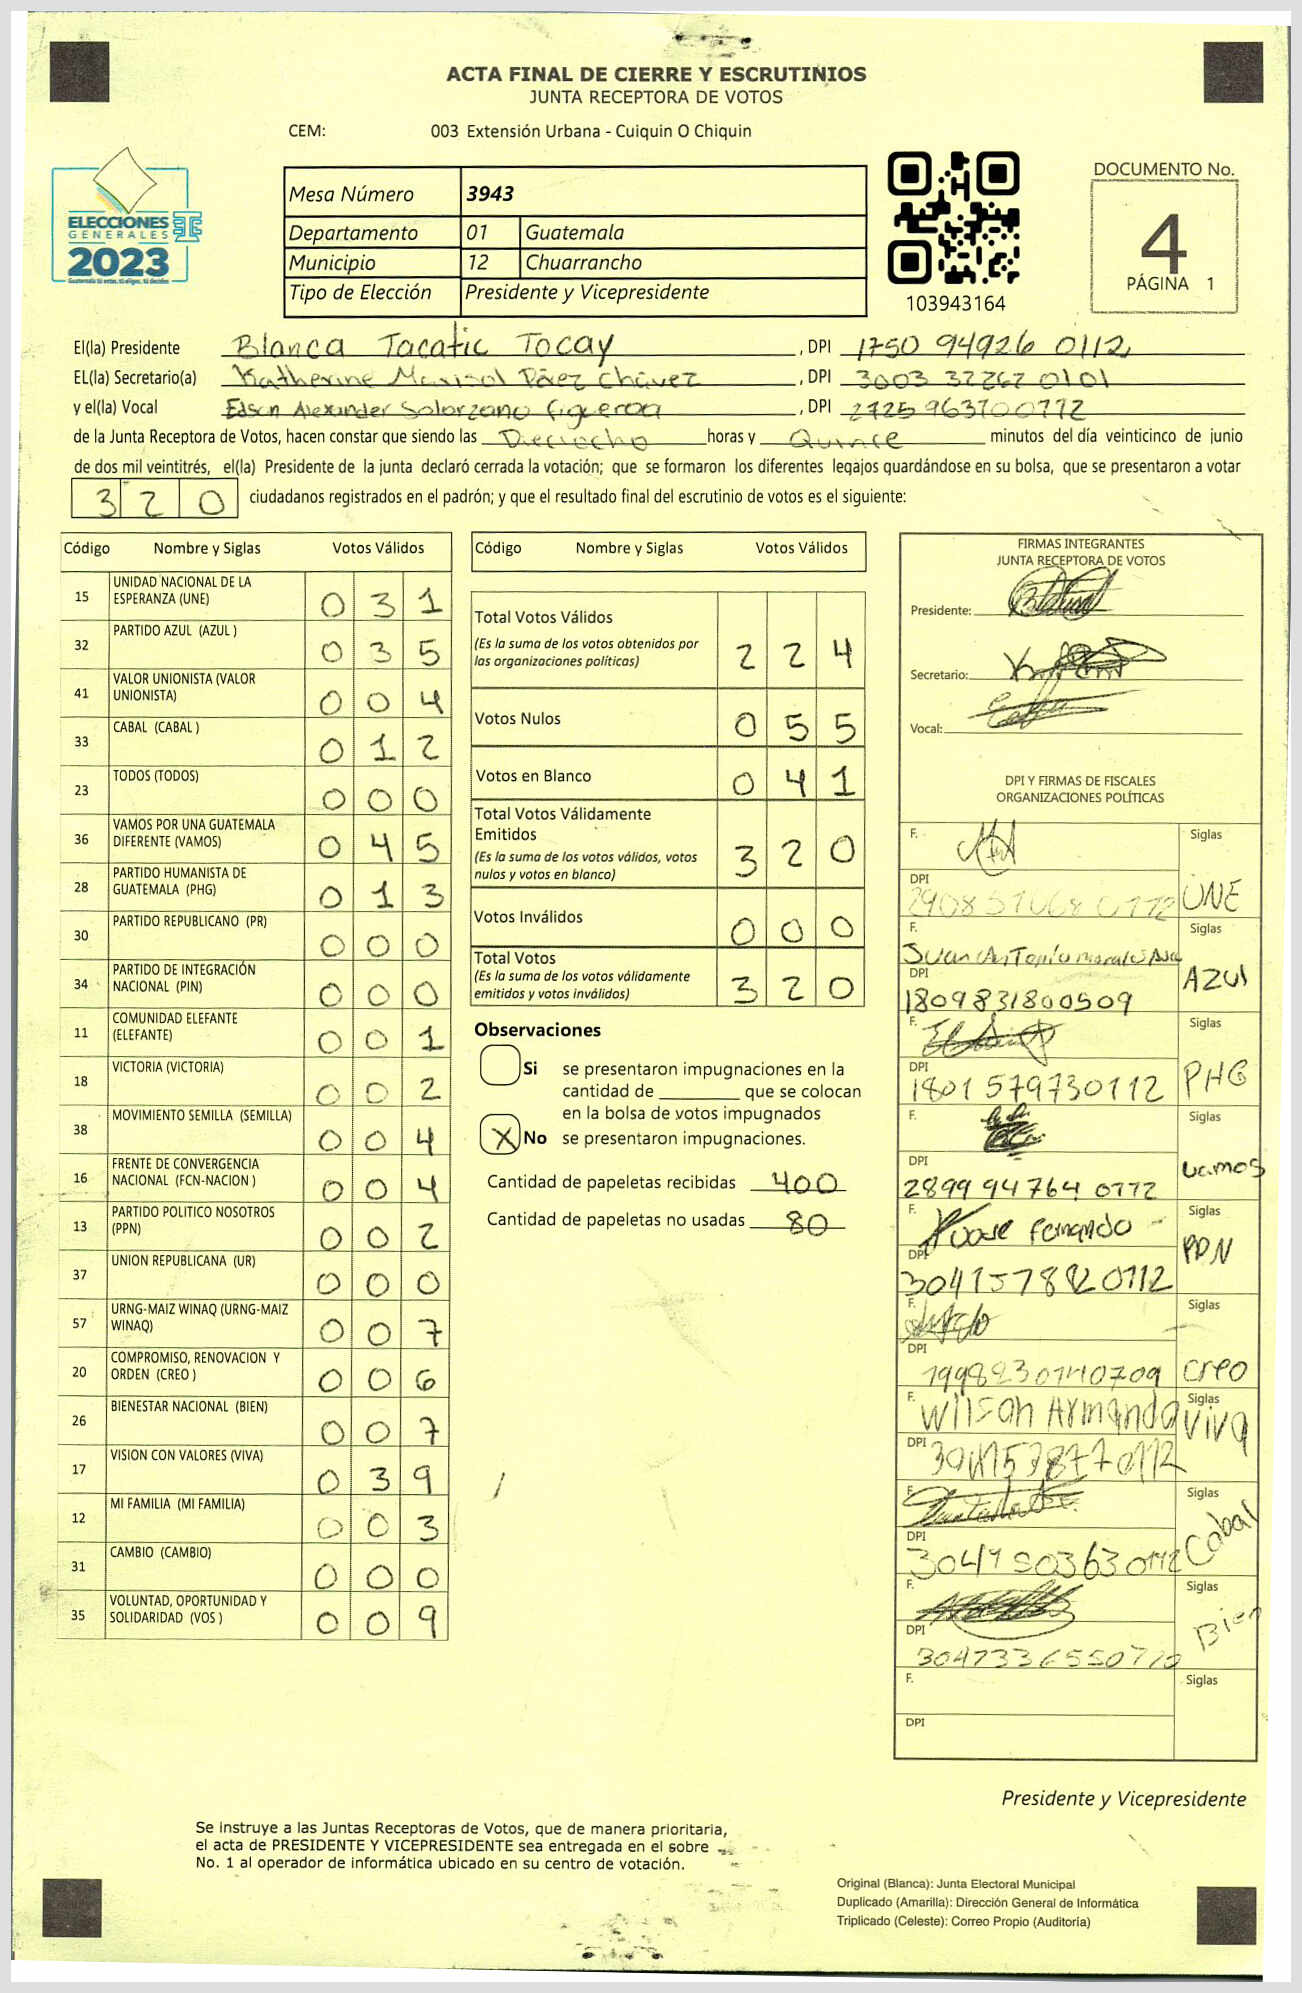 ACTA FINAL DE CIERRE Y ESCRUTINIOS
JUNTA RECEPTORA DE VOTOS
CEM: 003 Extensión Urbana - Cuiquin O Chiquin
ELECCIONES
GENERALES
2023
Mesa Número 3943
Departamento 01 Guatemala
Municipio 12 Chuarrancho
Tipo de Elección Presidente y Vicepresidente
103943164
DOCUMENTO No.
4
PÁGINA 1
El(la) Presidente Blanca Tacatic Tocay, DPI 1750 94926 0112
EL(la) Secretario(a) Katherine Marisol Páez Chávez, DPI 3003 32262 0101
y el(la) Vocal Edson Alexander Solorzano Figueroa, DPI 2725963700772
de la Junta Receptora de Votos, hacen constar que siendo las Dieciocho horas y Quince minutos del día veinticinco de junio
de dos mil veintitrés, el(la) Presidente de la junta declaró cerrada la votación; que se formaron los diferentes legajos guardándose en su bolsa, que se presentaron a votar
320 ciudadanos registrados en el padrón; y que el resultado final del escrutinio de votos es el siguiente:
Código Nombre y Siglas Votos Válidos
15 UNIDAD NACIONAL DE LA ESPERANZA (UNE) 0 3 1
32 PARTIDO AZUL (AZUL ) 0 3 5
41 VALOR UNIONISTA (VALOR UNIONISTA) 0 0 4
33 CABAL (CABAL ) 0 1 2
23 TODOS (TODOS) 0 0 0
36 VAMOS POR UNA GUATEMALA DIFERENTE (VAMOS) 0 4 5
28 PARTIDO HUMANISTA DE GUATEMALA (PHG) 0 1 3
30 PARTIDO REPUBLICANO (PR) 0 0 0
34 PARTIDO DE INTEGRACIÓN NACIONAL (PIN) 0 0 0
11 COMUNIDAD ELEFANTE (ELEFANTE) 0 0 1
18 VICTORIA (VICTORIA) 0 0 2
38 MOVIMIENTO SEMILLA (SEMILLA) 0 0 4
16 FRENTE DE CONVERGENCIA NACIONAL (FCN-NACION ) 0 0 4
13 PARTIDO POLITICO NOSOTROS (PPN) 0 0 2
37 UNION REPUBLICANA (UR) 0 0 0
57 URNG-MAIZ WINAQ (URNG-MAIZ WINAQ) 0 0 7
20 COMPROMISO, RENOVACION Y ORDEN (CREO ) 0 0 6
26 BIENESTAR NACIONAL (BIEN) 0 0 7
17 VISION CON VALORES (VIVA) 0 3 9
12 MI FAMILIA (MI FAMILIA) 0 0 3
31 CAMBIO (CAMBIO) 0 0 0
35 VOLUNTAD, OPORTUNIDAD Y SOLIDARIDAD (VOS ) 0 0 9
Código Nombre y Siglas Votos Válidos
Total Votos Válidos 2 2 4
(Es la suma de los votos obtenidos por
las organizaciones políticas)
Votos Nulos 0 5 5
Votos en Blanco 0 4 1
Total Votos Válidamente
Emitidos 3 2 0
(Es la suma de los votos válidos, votos
nulos y votos en blanco)
Votos Inválidos 0 0 0
Total Votos 3 2 0
(Es la suma de los votos válidamente
emitidos y votos inválidos)
Observaciones
Si se presentaron impugnaciones en la
cantidad de ________ que se colocan
en la bolsa de votos impugnados
X No se presentaron impugnaciones.
Cantidad de papeletas recibidas 400
Cantidad de papeletas no usadas 80
FIRMAS INTEGRANTES
JUNTA RECEPTORA DE VOTOS
Presidente:
Secretario:
Vocal:
DPI Y FIRMAS DE FISCALES
ORGANIZACIONES POLÍTICAS
F. Siglas
DPI UNE
F. Juan Antonio morales Siglas
DPI 1809831800509 AZUl
F. Siglas
DPI 1801579730112 PHG
F. Siglas
DPI 2899 94764 0112 vamos
F. Fernando Siglas
DPI PPN
F. Siglas
DPI Creo
F. Wilson Armando Siglas
DPI Viva
F. Siglas
DPI Cabal
F. Siglas
DPI Bien
F. Siglas
DPI
Presidente y Vicepresidente
Se instruye a las Juntas Receptoras de Votos, que de manera prioritaria,
el acta de PRESIDENTE Y VICEPRESIDENTE sea entregada en el sobre
No. 1 al operador de informática ubicado en su centro de votación.
Original (Blanca): Junta Electoral Municipal
Duplicado (Amarilla): Dirección General de Informática
Triplicado (Celeste): Correo Propio (Auditoría)